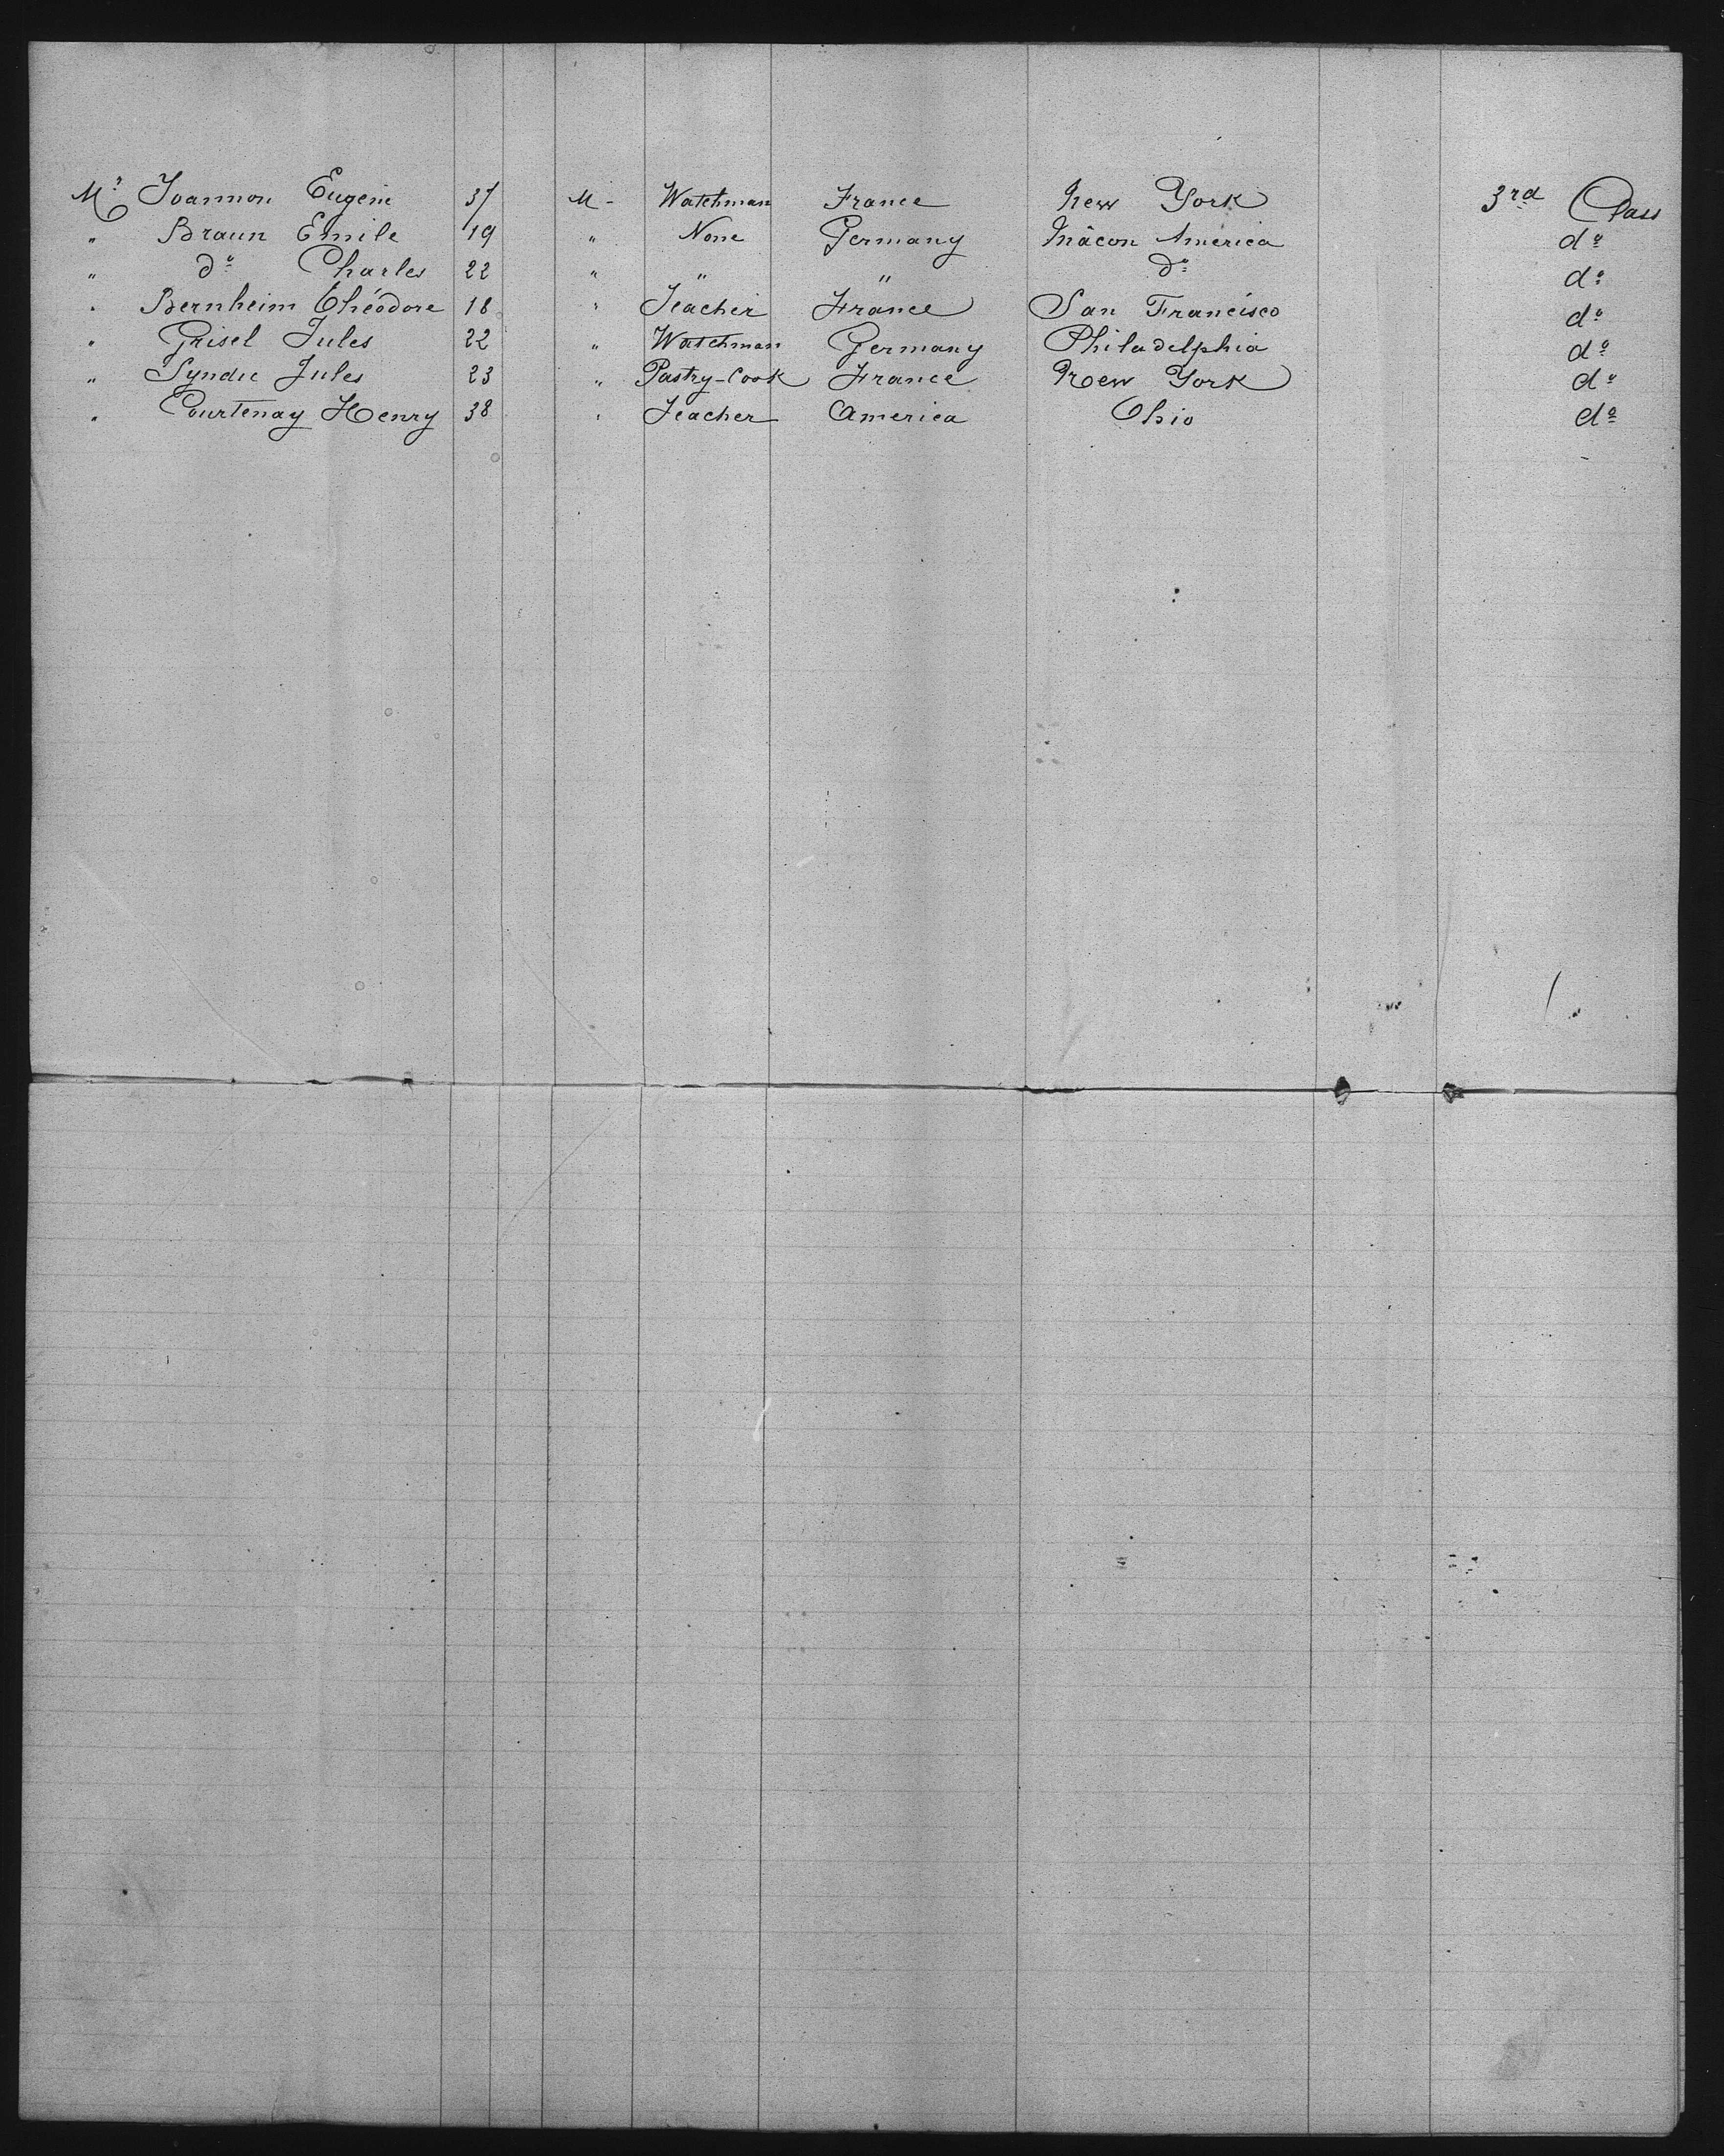 Mr Joannon Eugène 37 M - Watchman France New York 3rd Class
" Braun Emile 19 " None Germany Mâcon America do
" do Charles 22 " " " do do
" Bernheim Théodore 18 " Teacher France San Francisco do
" Grisel Jules 22 " Watchman Germany Philadelphia do
" Jules 23 " Pastry-Cook France New York do
" Courtenay Henry 38 " Teacher America Ohio do